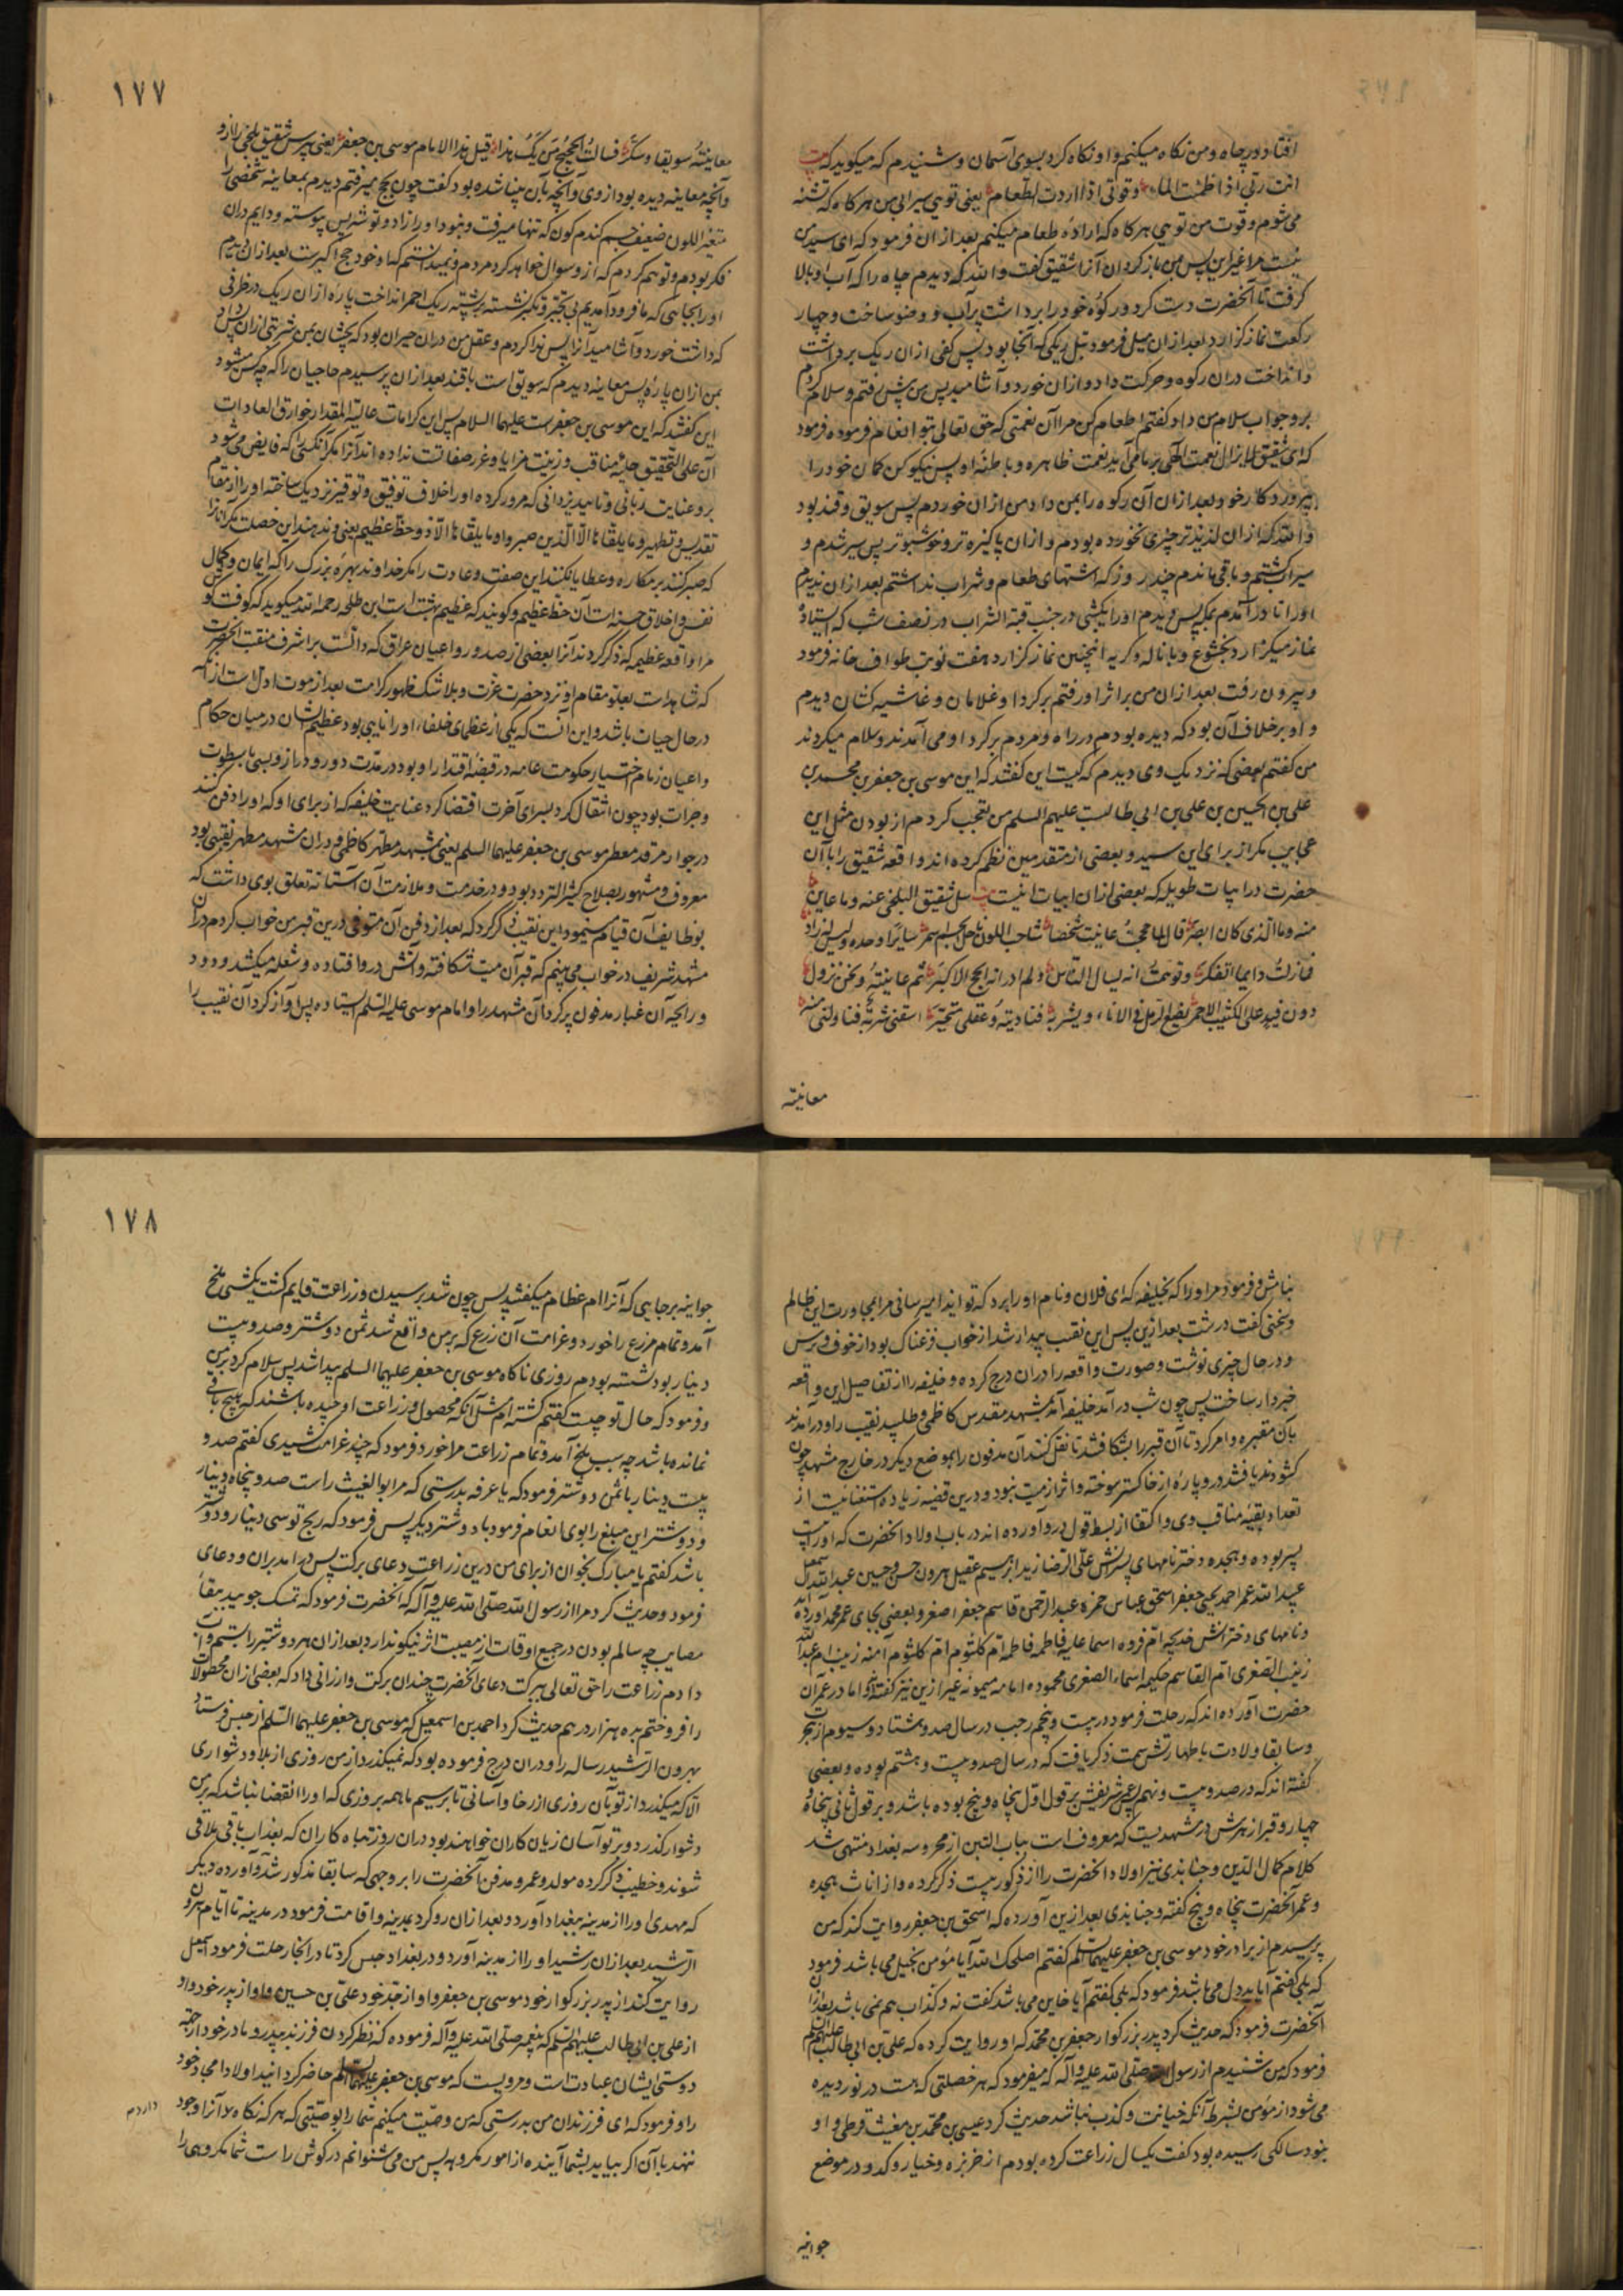 افتاد در چاه و من نگاه میکنم و او نگاه کرد بسوی آسمان و شنیدم که میگوید که
انت ربی اذا ظمئت الماء و قوتی اذا اردت الطعام یعنی تویی سیرابی من هر گاه که تشنه
می شوم و قوت من تویی هر گاه که اراده طعام میکنم بعد از ان فرمود که ای سید من
نیست مرا غیر این پس من باز کردان آنرا شقیق گفت والله که دیدم چاه را که آب او بالا
گرفت تا آنحضرت دست کرد و رکوه خود را برداشت پر آب و وضو ساخت و چهار
رکعت نماز گزارد بعد از ان میل فرمود بتل ریگی که آنجا بود پس کفی از ان ریک برداشت
و انداخت در ان رکوه و حرکت داد و از ان خورد و آشامید پس من پیش رفتم و سلام کردم
بر و جواب سلام من داد گفتم اطعام کن مرا از آن نعمتی که حق تعالی بتو انعام فرموده فرمود
که ای شقیق لایزال نعمت الهی بر ما می آید نعمت ظاهره و باطنه او پس نیکو کن گمان خود را
بپروردگار خود بعد از ان آن رکوه را بمن داد من از ان خوردم پس سویق و قند بود
والله که از ان لذیذتر چیزی نخورده بودم و از ان پاکیزه تر و خوشبوتر پس سیر شدم و
سیراب گشتم و باقی ماندم چند روز که اشتهای طعام و شراب نداشتم بعد از ان ندیدم
او را تا در آمدم بمکه پس دیدم او را یکشبی در جنب قبة الشراب در نصف شب که ایستاده
نماز میگزارد بخشوع و با ناله و گریه اینچنین نماز گزارد هفت نوبت طواف خانه فرمود
و بیرون رفت بعد از ان من بر اثر او رفتم بر گرد او غلامان و غاشیه کشان دیدم
و او بر خلاف آن بود که دیده بودم در راه و مردم بر گرد او می آمدند و سلام میکردند
من گفتم بعضی که نزدیک وی دیدم که کیست این گفتند که این موسی بن جعفر بن محمد بن
علی بن الحسین بن علی بن ابی طالب علیهم السلم من تعجب کردم از بودن مثل این
عجایب مگر از برای این سید و بعضی از متقدمین نظم کرده اند واقعه شقیق را با آن
حضرت در ابیات طویله که بعضی از ان ابیات اینست سل شقیق البلخی عنه و ما عاین
منه و ما الذی کان ابصر قال لما حججت عاینت شخصا شاحب اللون ناحل الجسم اسمر سایرا وحده و لیس له زاد
فمازلت دایما اتفکر و توهمت انه یسال الناس و لم ادر انه الحج الاکبر ثم عاینته و نحن نزول
دون فید علی الکثیب الاحمر یضع الرمل فی الاناء و یشربه فنادیته و عقلی متحیر اسقنی شربة فناولنی منه
معاینته
۱۷۷
معاینته سویقا و سکر فسالت الحجیج من یک هذا قیل هذا الامام موسی بن جعفر یعنی بپرس شقیق بلخی را از و
و آنچه معاینه دیده بود از وی و آنچه بآن بینا شده بود گفت چون بحج میرفتم دیدم بمعاینه شخصی را
متغیر اللون ضعیف جسم گندم کون که تنها میرفت و نبود او را زاد و توشه پس پیوسته و دایم در ان
فکر بودم و توهم کردم که از و سوال خواهد کرد مردم و نمیدانستم که او خود حج اکبرست بعد از ان دیدم
او را بجایی که ما فرود آمدیم نشسته بر پشته ریک احمر انداخت پاره از ان ریک در ظرفی
که داشت خورد و آشامید آنرا پس ندا کردم و عقل من در ان حیران بود که بچشان بمن شربتی از ان پس داد
بمن از ان پاره پس معاینه دیدم که سویق است با قند بعد از ان پرسیدم حاجیان را که چه کس میشود
این گفتند که این موسی بن جعفرست علیهما السلام پس این کرامات عالیة المقدار خوارق العادات
آن علی التحقیق حلیه مناقب و زینت مزایا و غرر صفاتست نداده اند آنرا مگر آنکسی را که فایض می شود
برو عنایت ربانی و تایید یزدانی که مرور کرده او را اخلاف توفیق و توقیر نزدیک ساخته او را از مقام
تقدیس و تطهیر و ما یلقاها الا الذین صبروا و ما یلقاها الا ذو حظ عظیم یعنی و ندهند این خصلت مگر آنانرا
که صبر کنند بر مکاره و عطا نکنند این صفت و عادت را مگر خداوند بهره بزرک را که ایمان و کمال
نفس و اخلاق حسنه است آن حظ عظیم و گویند که عظیم بهشت است ابن طلحه رحمه الله میگوید که گوفت گو
مرا واقعه عظیم که ذکر کردند آنرا بعضی از صدور و اعیان عراق که دالست بر اشرف منقبت آنحضرت
که شاهدست بعلو مقام او نزد حضرت عزت و بلا شک ظهور کرامت بعد از موت ادل است از آنکه
در حال حیات باشد و این آنست که یکی از عظمای خلفاء او را نایبی بود عظیم الشان در میان حکام
و اعیان زمام اختیار حکومت عامه در قبضه اقتدار او بود در مدت دور و دراز و بسی با سطوت
و جرات بود چون انتقال کرد بسرای آخرت اقتضا کرد عنایت خلیفه که از برای او که او را دفن کنند
در جوار مرقد معطر موسی بن جعفر علیهما السلم یعنی بمشهد مطهر کاظمی و در ان مشهد مطهر نقیبی بود
معروف و مشهور بصلاح کثیر التردد بود و در خدمت و ملازمت آن آستانه تعلق بوی داشت که
بوظایف آن قیام مینمود این نقیب ذکر کرد که بعد از دفن آن متوفی درین قبر من خواب کردم در ان
مشهد شریف در خواب می بینم که قبر آن میت شکافته و آتش درو افتاده و شعله میکشد و دود
و رایحه آن غبار مدفون پر کرد آن مشهد را و امام موسی علیه السلم ایستاده پس آواز کرد آن نقیب را
بنامش و فرمود مر او را که بخلیفه که ای فلان و نام او را برد که تو ایذا میرسانی مرا بمجاورت این ظالم
و سخنی گفت درشت بعد ازین پس این نقیب بیدار شد از خواب فزعناک بود از خوف و ترس
و در حال چیزی نوشت و صورت واقعه را در ان درج کرده و خلیفه را از تفاصیل این واقعه
خبردار ساخت پس چون شب در آمد خلیفه آمد بمشهد مقدس کاظمی و طلبید نقیب را و در آمدند
بآن مقبره و امر کرد تا آن قبر را بشکافند تا نقل کنند آن مدفون را بموضع دیگر در خارج مشهد چون
گشودند یافتند درو پاره از خاکستر سوخته و اثر از میت نبود و درین قضیه زیاده استغنائیست از
تعداد بقیه مناقب وی و اکتفا از بسط قول در و آورده اند در باب اولاد آنحضرت که او را بیست
پسر بوده و هجده دختر نامهای پسرانش علی الرضا زید ابرهیم عقیل هرون حسن حسین عبد الله اسمعیل
عبید الله عمر احمد یحیی جعفر اسحق عباس حمزه عبد الرحمن قاسم جعفر اصغر و بعضی بجای عمر محمد آورده اند
و نامهای دخترانش خدیجه ام فروه اسما علیه فاطمه فاطمه ام کلثوم ام کلثوم آمنه زینب ام عبد الله
زینب الصغری ام القاسم حکیمه اسماء الصغری محموده امامه میمونه غیر ازین نیز گفته اند و اما در عمر آن
حضرت آورده اند که رحلت فرمود در بیست و پنجم رجب در سال صد و هشتاد و سیوم از هجرت
و سابقا ولادت با طهارتش سمت ذکر یافت که در سال صد و بیست و هشتم بوده و بعضی
گفته اند که در صد و بیست و نهم پس عمر شریفش بر قول اول پنجاه و پنج بوده باشد و بر قول ثانی پنجاه و
چهار و قبر ازهرش در مشهدیست که معروف است بباب التین از محروسه بغداد منتهی شد
کلام کمال الدین و جنابذی نیز اولاد آنحضرت را از ذکور بیست ذکر کرده و از اناث هجده
و عمر آنحضرت پنجاه و پنج گفته و جنابذی بعد ازین آورده که اسحق بن جعفر روایت کند که من
پرسیدم از برادر خود موسی بن جعفر علیهما السلم گفتم اصلحک الله آیا مؤمن بخیل می باشد فرمود
که بلی گفتم آیا بد دل می باشد فرمود که بلی گفتم آیا خاین می باشد گفت نه و کذاب هم نمی باشد بعد از ان
آنحضرت فرمود که حدیث کرد پدر بزرگوار جعفر بن محمد که او روایت کرده که علی بن ابی طالب علیهم السلم
فرمود که من شنیدم از رسول صلی الله علیه و آله که میفرمود که هر خصلتی که هست در نوردیده
می شود از مؤمن بشرط آنکه خیانت و کذب نباشد حدیث کرد عیسی بن محمد بن مغیث قرظی و او
بنود سالگی رسیده بود گفت یکسال زراعت کرده بودم از خربزه و خیار و کدو در موضع
جوانیه
۱۷۸
جوانیه بر جایی که آنرا ام عظام میگفتند پس چون شد برسیدن و زراعت قایم گشت یکشبی ملخ
آمد و تمام مزرع را خورد و غرامت آن زرع که بر من واقع شد ثمن دو شتر و صد و بیست
دینار بود نشسته بودم روزی ناگاه موسی بن جعفر علیهما السلم پیدا شد پس سلام کرد بر من
و فرمود که حال تو چیست گفتم گشته ام مثل آنکه محصول و زراعت او چیده باشند که هیچ باقی
نمانده باشد چه بسبب ملخ آمد و تمام زراعت مرا خورد فرمود که چند غرامت کشیدی گفتم صد و
بیست دینار با ثمن دو شتر فرمود که یا عرفه بدرستی که مر ابو الغیث راست صد و پنجاه دینار
و دو شتر این مبلغ را بوی انعام فرمود با دو شتر دیگر پس فرمود که ربح تو سی دینار و دو شتر
باشد گفتم یا مبارک بخوان از برای من درین زراعت دعای برکت پس در آمد بران و دعای
فرمود و حدیث کرد مرا از رسول الله صلی الله علیه و آله که آنحضرت فرمود که تمسک جویید ببقایا
مصایب چه سالم بودن در جمیع اوقات از مصیبت اثر نیکو ندارد بعد از ان هر دو شتر را بستم و آب
دادم زراعت را حق تعالی ببرکت دعای آنحضرت چندان برکت و ارزانی داد که بعضی از ان محصولات
را فروختم بده هزار درهم حدیث کرد احمد بن اسمعیل که موسی بن جعفر علیهما السلم از حبس فرستاد
بهرون الرشید رساله را و در ان درج فرموده بود که نمیگذرد از من روزی از بلا و دشواری
الا که میگذرد از تو بآن روزی از رخا و آسانی تا برسیم ما همه بروزی که او را انقضا نباشد که بر من
دشوار گذرد و بر تو آسان زیان کاران خواهند بود در ان روز تباه کاران که بعذاب باقی ملاقی
شوند و خطیب ذکر کرده مولد و عمر و مدفن آنحضرت را بر وجهی که سابقا مذکور شد و آورده دیگر
که مهدی او را از مدینه ببغداد آورد و بعد از ان رد کرد بمدینه و اقامت فرمود در مدینه تا ایام هرون
الرشید بعد از ان رشید او را از مدینه آورد و در بغداد حبس کرد تا در آنجا رحلت فرمود اسمعیل
روایت کند از پدر بزرگوار خود موسی بن جعفر و او از جد خود علی بن حسین و او از پدر خود و او
از علی بن ابی طالب علیهم السلم که پیغمبر صلی الله علیه و آله فرموده که نظر کردن فرزند بپدر و مادر خود از جهة
دوستی ایشان عبادت است و مرویست که موسی بن جعفر علیهما السلم حاضر گردانید اولاد امجاد خود
را و فرمود که ای فرزندان من بدرستی که من وصیت میکنم شما را بوصیتی که هر که نگاه دارد آنرا وجود
ننهد بآن اگر بیاید بشما آینده از امور مکروهه پس من می شنوانم در گوش راست شما مکروهی را